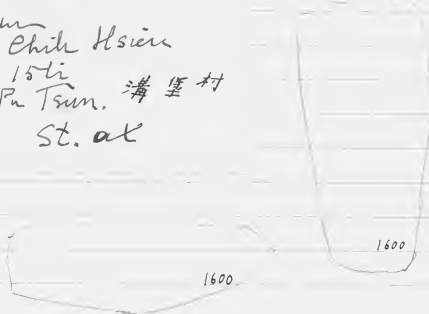 Chih Hsien
15li
Pu Tsun. 溝堡村
St. at
1600
1600